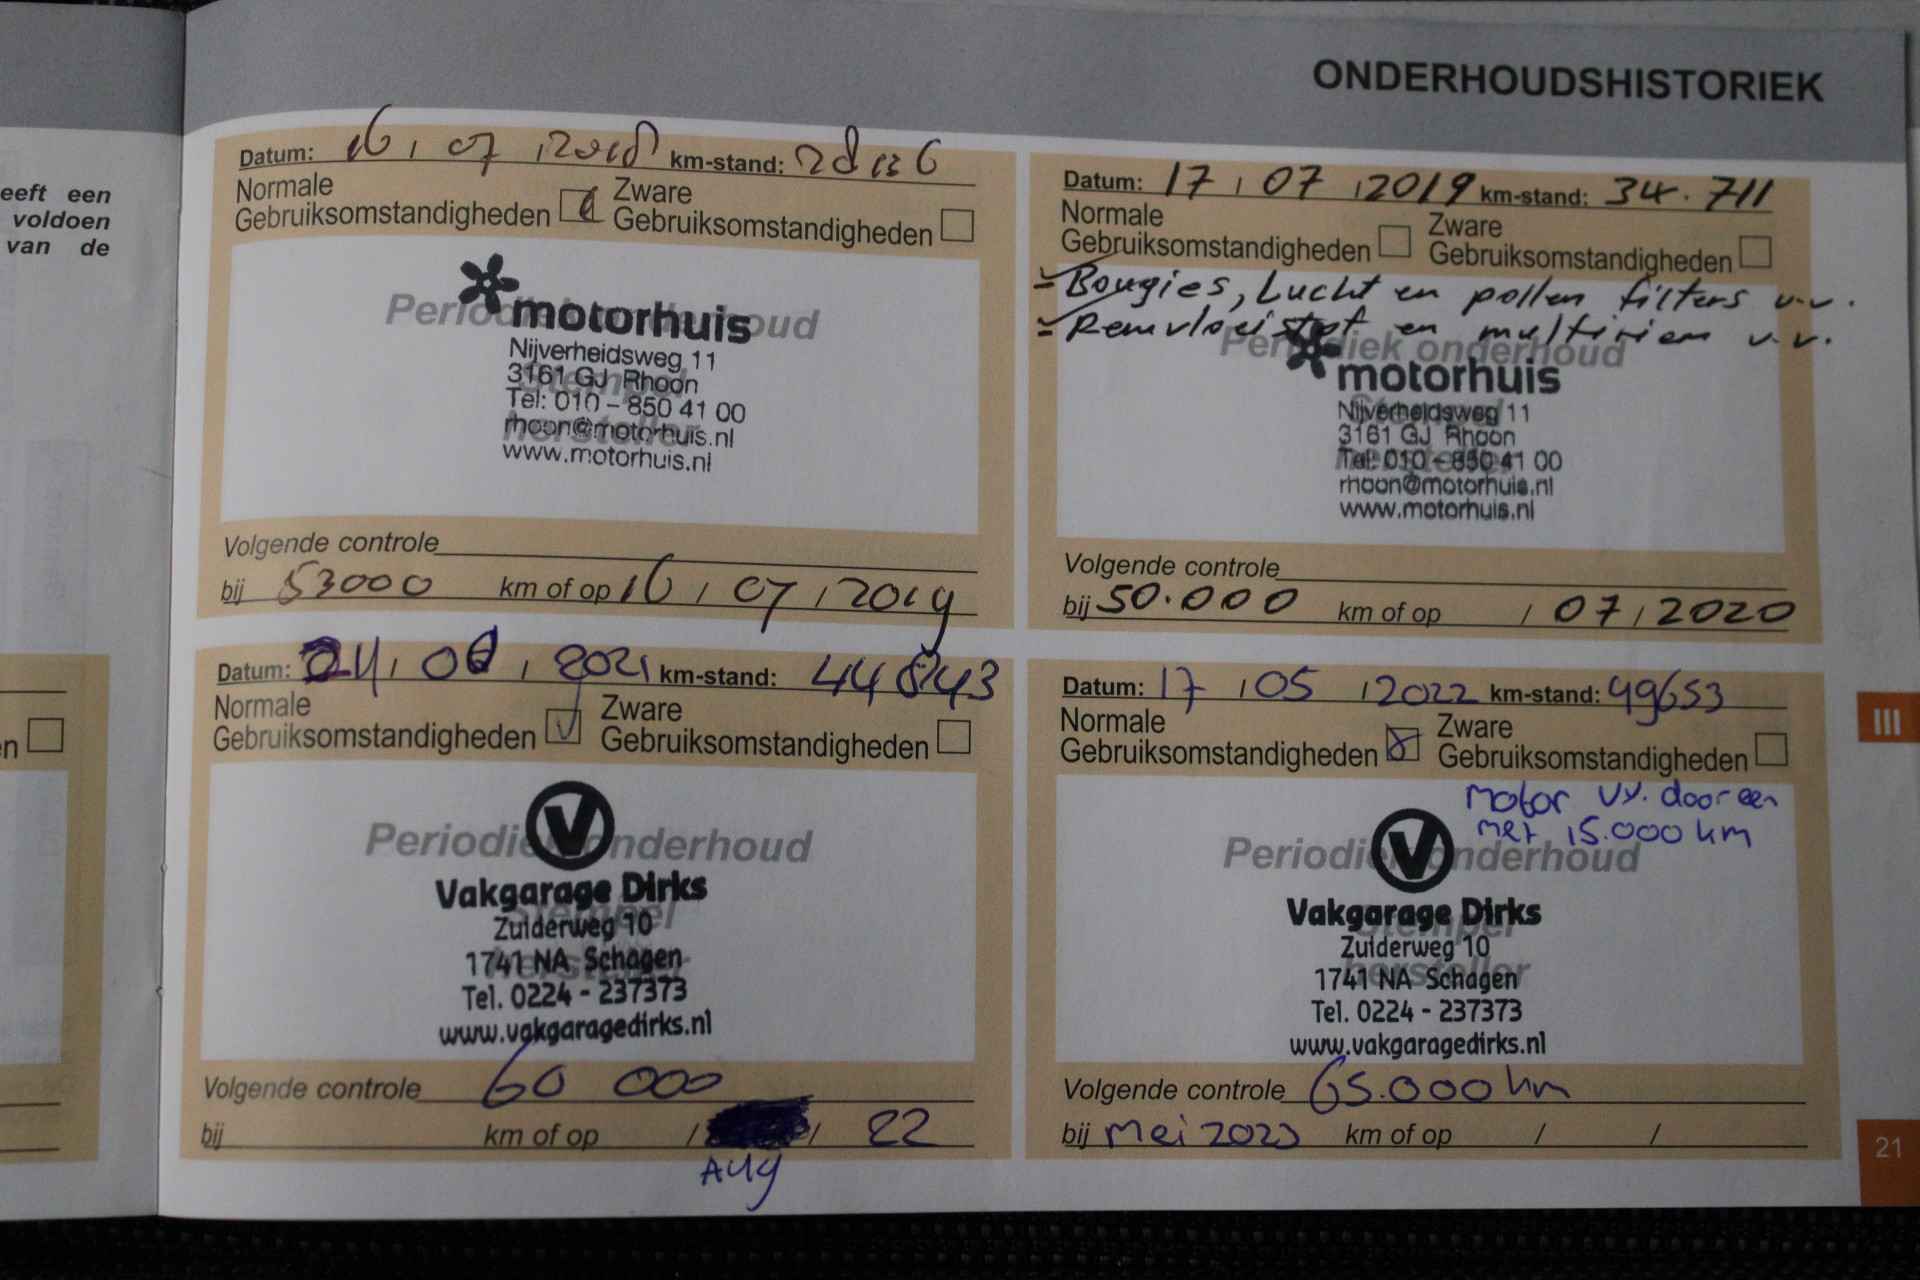 ONDERHOUDSHISTORIEK
eeft een
voldoen
van de
Datum: 16 / 07 / 2018 km-stand:
Normale Gebruiksomstandigheden Zware Gebruiksomstandigheden
Periodiek onderhoud
motorhuis
Nijverheidsweg 11
3161 GJ Rhoon
Tel: 010 - 850 41 00
rhoon@motorhuis.nl
www.motorhuis.nl
Stempel
hersteller
Volgende controle
bij 53000 km of op 16 / 07 / 2019
Datum: 17 / 07 / 2019 km-stand: 34.711
Normale Gebruiksomstandigheden Zware Gebruiksomstandigheden
- Bougies, Lucht en pollen filters v.v.
- Remvloeistof en multiriem v.v.
Periodiek onderhoud
motorhuis
Nijverheidsweg 11
3161 GJ Rhoon
Tel: 010 - 850 41 00
rhoon@motorhuis.nl
www.motorhuis.nl
Volgende controle
bij 50.000 km of op / 07 / 2020
Datum: / / 2021 km-stand: 44843
Normale Gebruiksomstandigheden Zware Gebruiksomstandigheden
Periodiek onderhoud
V
Vakgarage Dirks
Stempel
Zuiderweg 10
1741 NA Schagen
Tel. 0224 - 237373
www.vakgaragedirks.nl
Volgende controle 60 000
bij km of op / / 22
Aug
Datum: 17 / 05 / 2022 km-stand: 49653
Normale Gebruiksomstandigheden Zware Gebruiksomstandigheden
motor v.v. door een
met 15.000 km
Periodiek onderhoud
V
Vakgarage Dirks
Stempel
Zuiderweg 10
hersteller
1741 NA Schagen
Tel. 0224 - 237373
www.vakgaragedirks.nl
Volgende controle 65.000 km
bij mei 2023 km of op / /
III
21
n